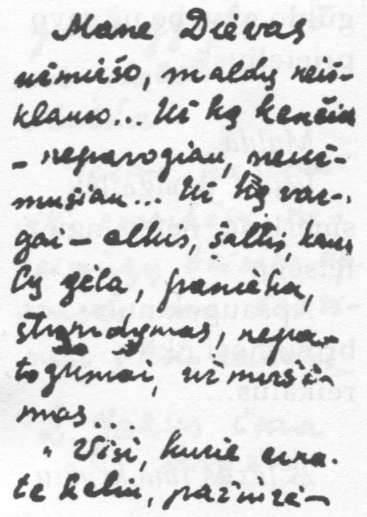 Mane Dievas
užmiršo, maldų neiš-
klauso... Už ką kenčiu
– nepavogiau, neuž-
mušiau... Už ką var-
gai – alkis, šaltis, kau
lų gėla, panieka,
skriaudymas, nepa-
togumai, užmirši-
mas.
„Visi, kurie eina-
te keliu, pažiūrė-